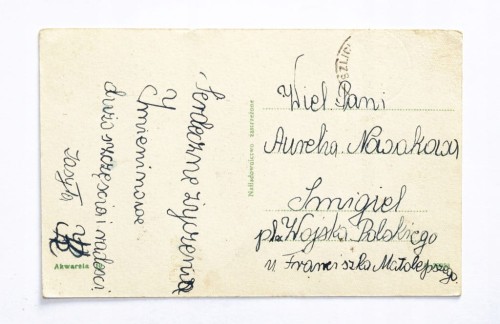 Serdeczne życzenia
Imieninowe
dużo szczęścia i radości
zasyła
Akwarela
Naśladownictwo zastrzeżone
Wiel Pani
Aurelia Nowakowa
Śmigiel
pl. Wojska Polskiego
u Franciszka Małolepszego